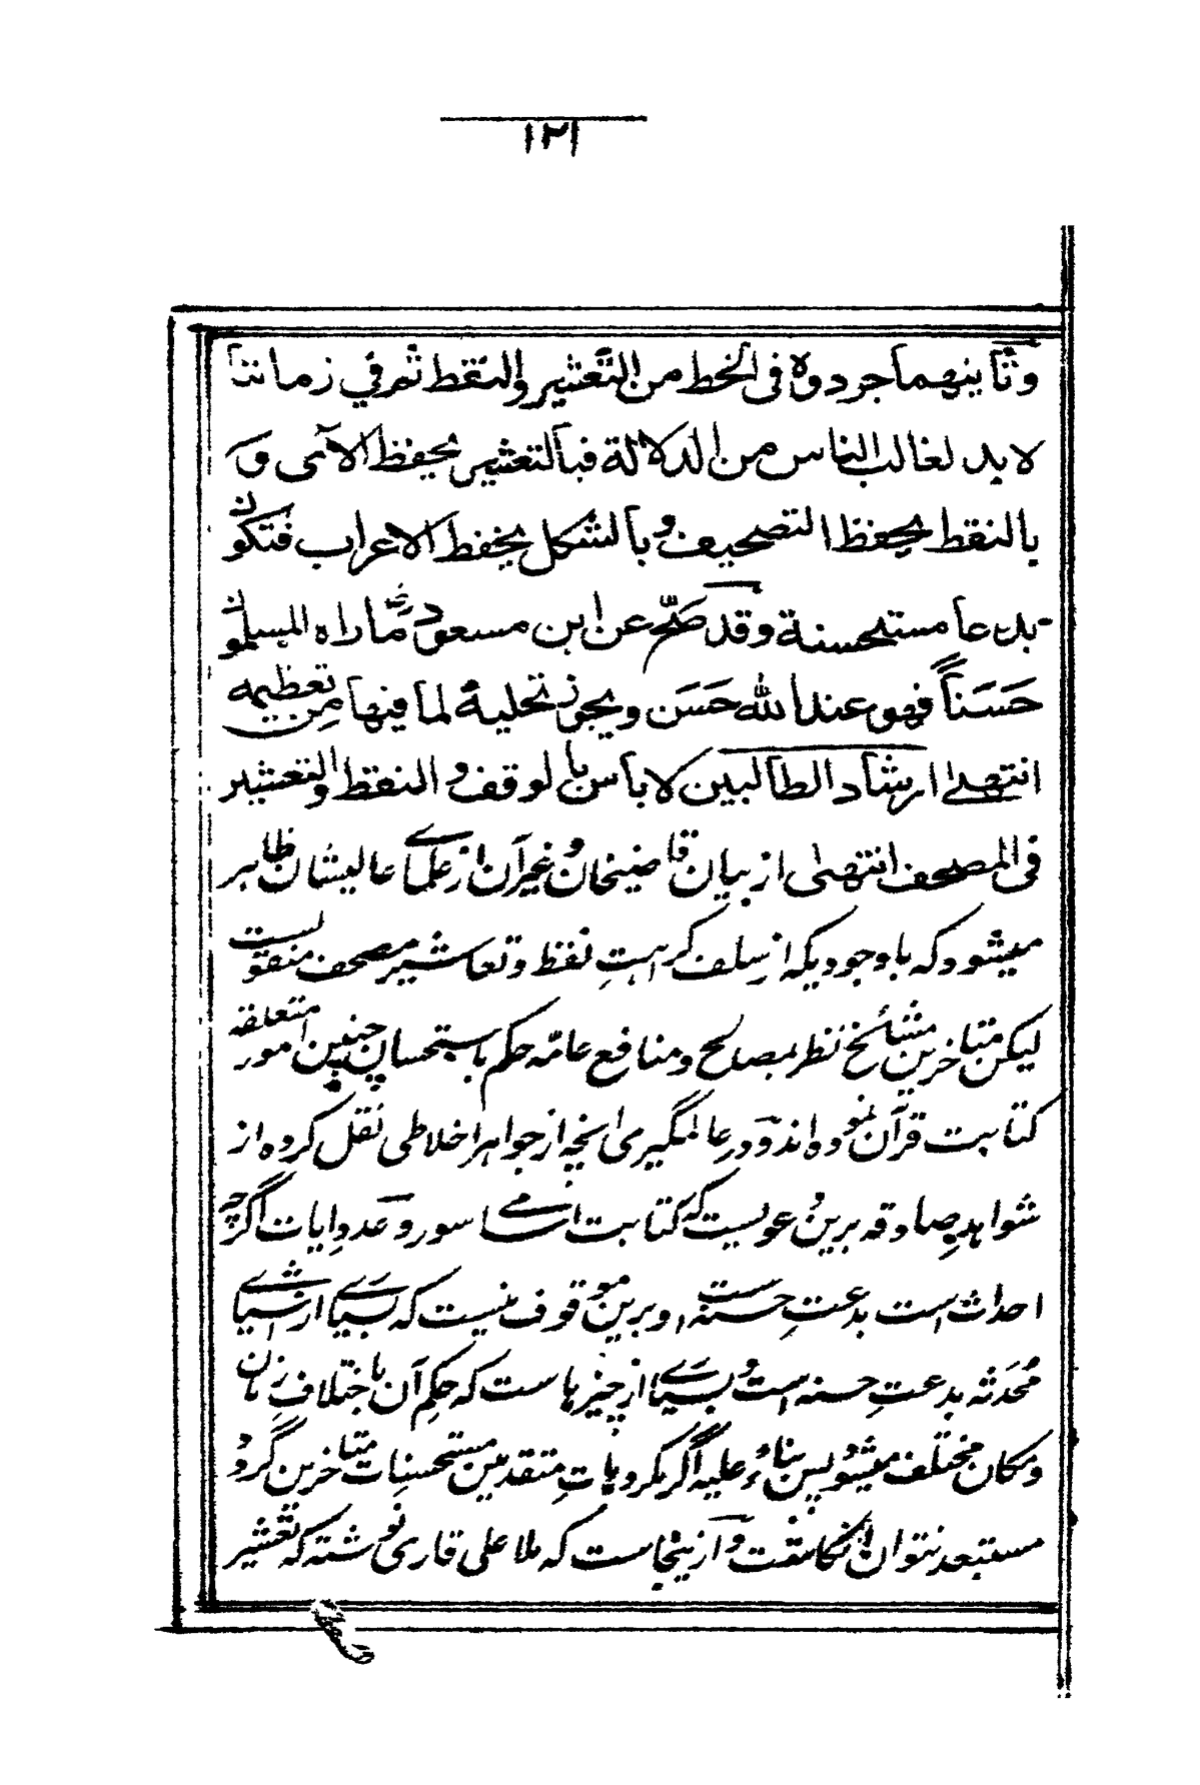 ۱۲۱
وثانيهما جردوه في الخط من التعشير والنقط ثم في زماننا
لا بد لغالب الناس من الدلالة فبالتعشير يحفظ الآى و
بالنقط يحفظ التصحيف و بالشكل يحفظ الاعراب فتكون
بدعا مستحسنة وقد صح عن ابن مسعود رض ما راه المسلمون
حَسَناً فهو عند الله حَسَن ويجوز تحلية لما فيها من تعظيمه
انتهى ارشاد الطالبين لا بأس بالوقف و النقط والتعشير
في المصحف انتهى از بيان قاضيخان و غير آن از علماى عاليشان ظاهر
ميشود كه با وجوديكه از سلف كراهتِ نقط و تعاشير مصحف منقولست
ليكن متاخرين مشائخ نظر بمصالح و منافع عامّه حكم باستحسان چنين امور متعلقه
كتابت قرآن نموده اند و در عالمگيرى انچه از جواهر اخلاطى نقل كرده از
شواهدِ صادقه برين دعويست كه كتابت اسامے سور و عددِ ايات اگرچه
احداث است بدعتِ حسنه است و برين موقوف نيست كه بسيارے از اشياى
مُحدَثه بدعتِ حسنه است و بسيارے از چيزها ست كه حكم آن باختلافِ زمان
و مكان مختلف ميشود پس بناءً عليه اگر مكروهاتِ متقدمين مستحسنات متاخرين گردد
مستبعد نتوان انگاشت و از ينجاست كه ملا على قارى نوشته كه تعشير